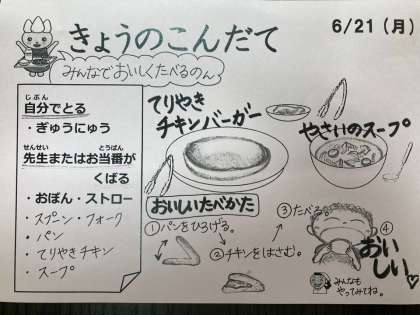 きょうのこんだて
6/21（月）
みんなでおいしくたべるのん
じぶん
自分でとる
・ぎゅうにゅう
せんせい とうばん
先生またはお当番が
くばる
・おぼん・ストロー
・スプーン・フォーク
・パン
・てりやきチキン
・スープ
てりやき
チキンバーガー
やさいのスープ
おいしいたべかた
①パンをひろげる。
②チキンをはさむ。
③たべる。
④
おいしい♡
みんなも
やってみてね。